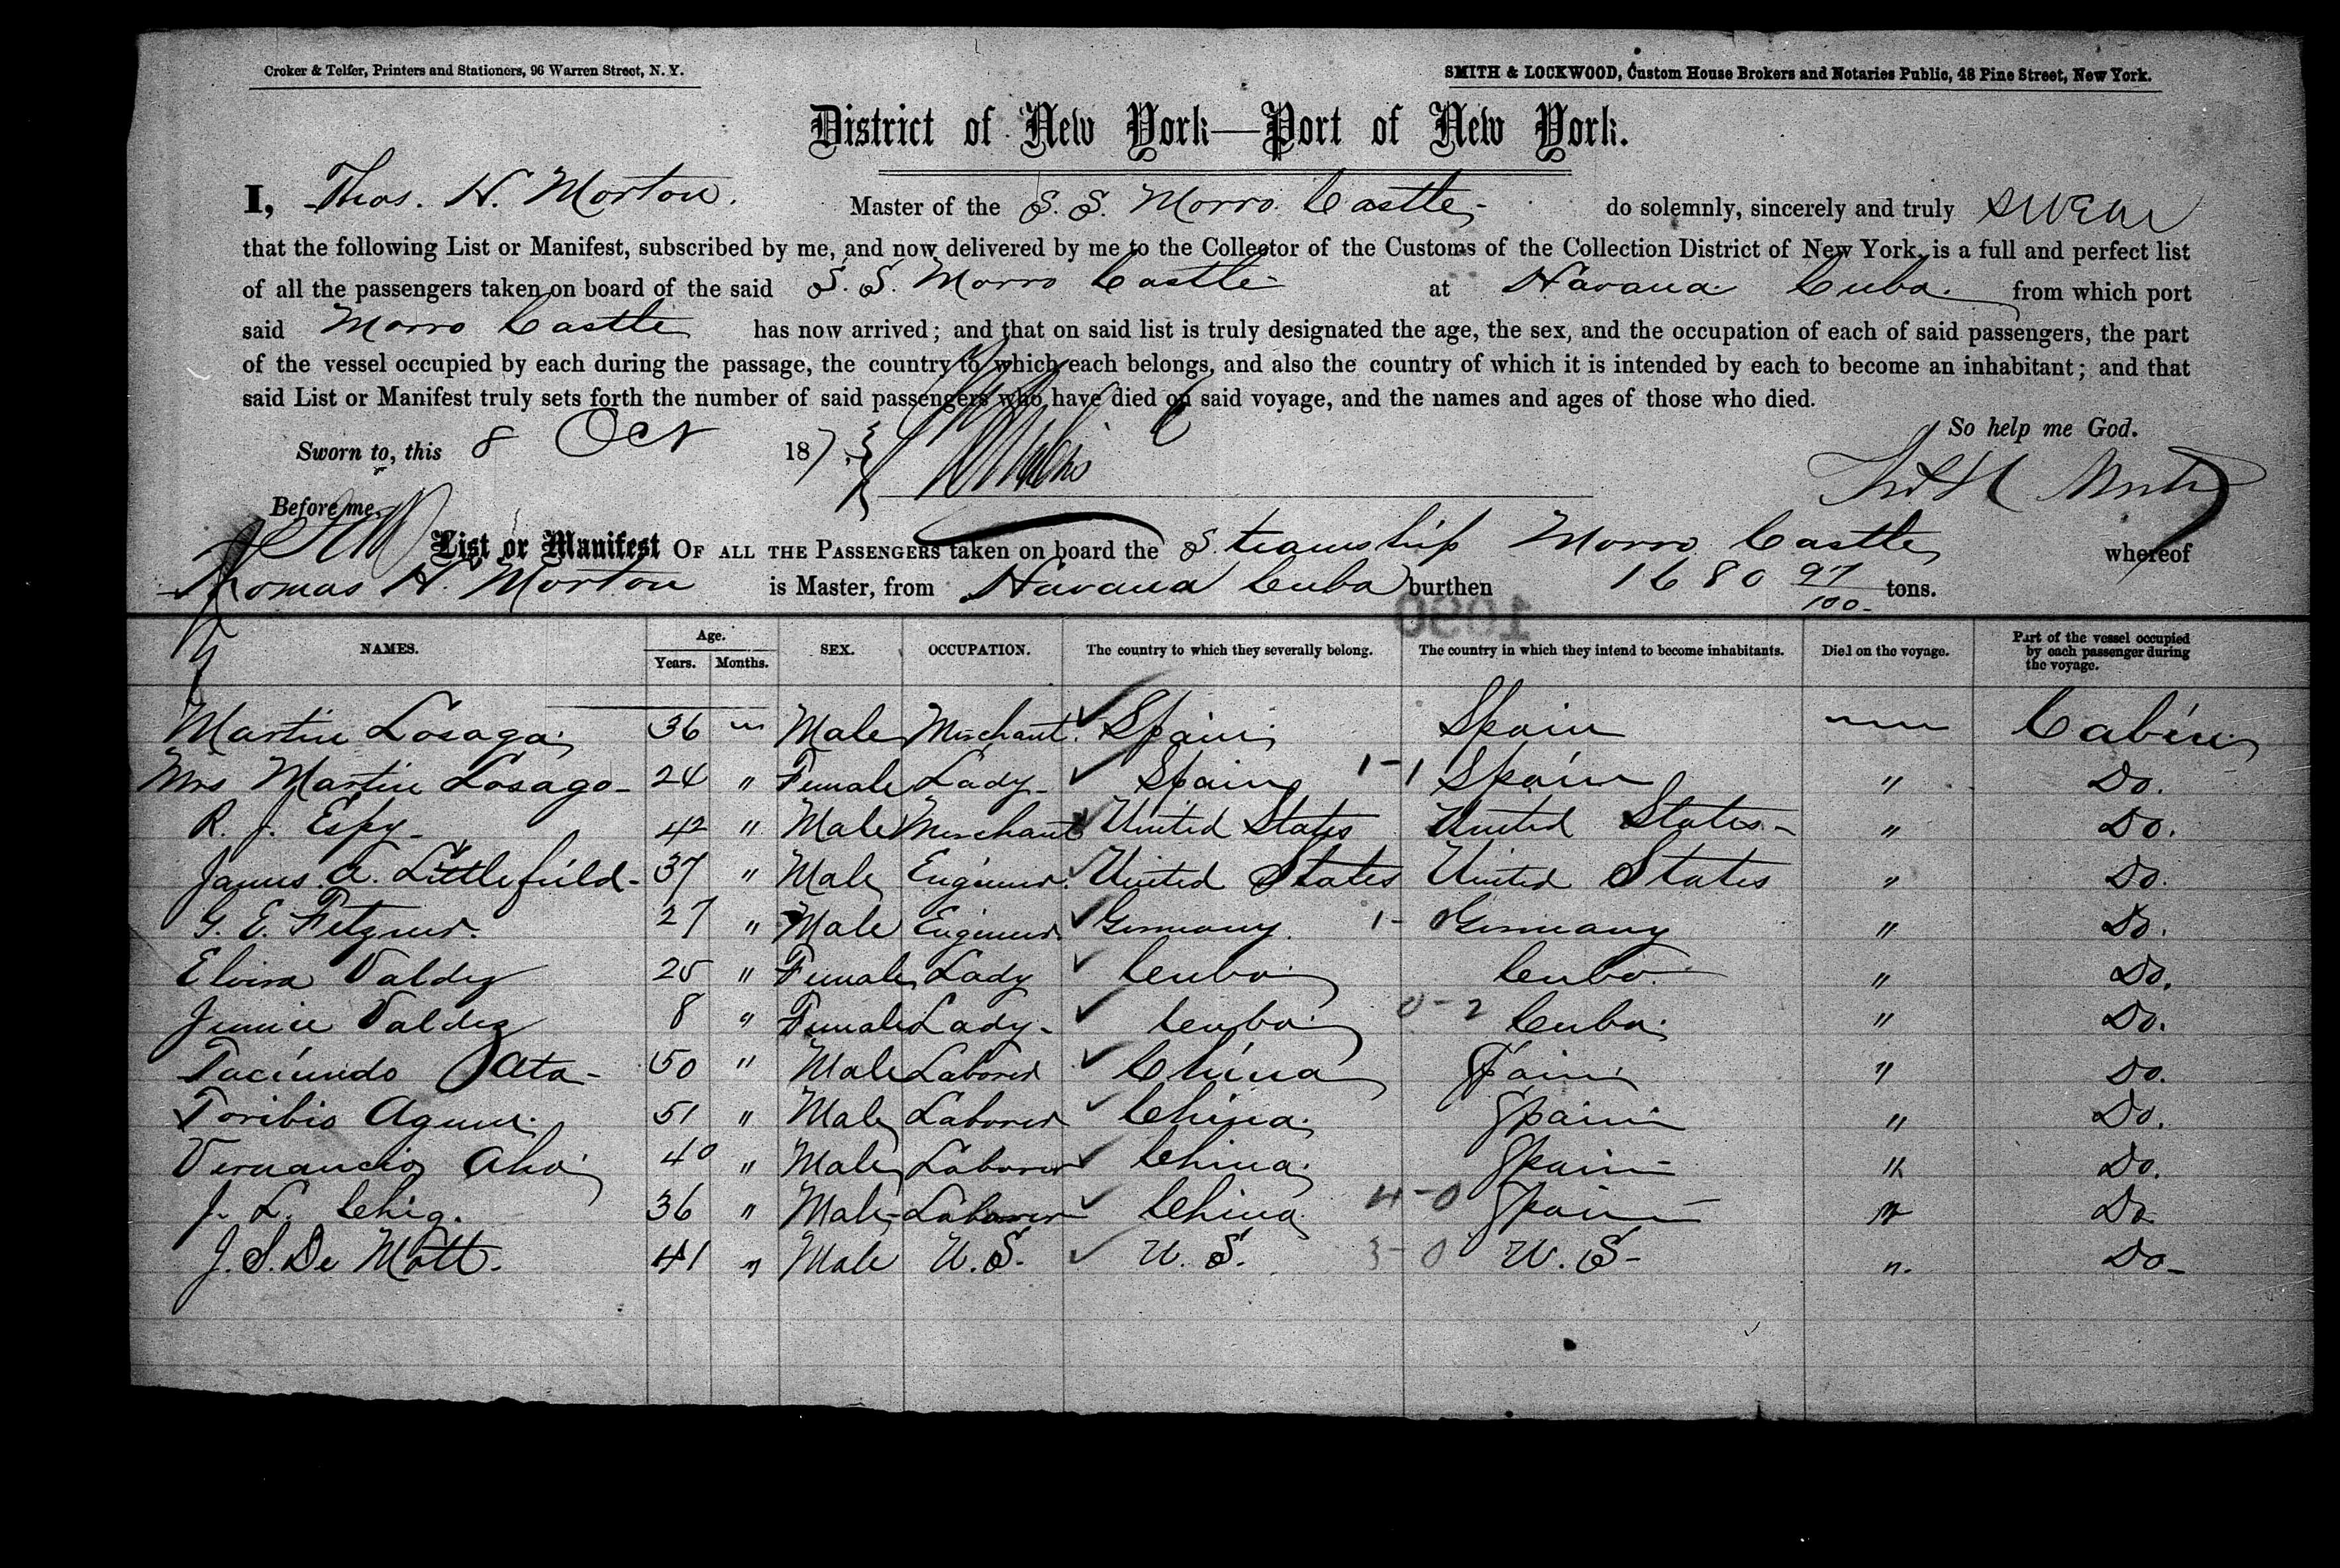 Croker & Telfer, Printers and Stationers, 96 Warren Street, N. Y.
SMITH & LOCKWOOD, Custom House Brokers and Notaries Public, 48 Pine Street, New York.
District of New York—Port of New York.
I, Thos. H. Morton. Master of the S. S. Morro Castle do solemnly, sincerely and truly swear
that the following List or Manifest, subscribed by me, and now delivered by me to the Collector of the Customs of the Collection District of New York, is a full and perfect list
of all the passengers taken on board of the said S. S. Morro Castle at Havana Cuba. from which port
said Morro Castle has now arrived; and that on said list is truly designated the age, the sex, and the occupation of each of said passengers, the part
of the vessel occupied by each during the passage, the country to which each belongs, and also the country of which it is intended by each to become an inhabitant; and that
said List or Manifest truly sets forth the number of said passengers who have died on said voyage, and the names and ages of those who died.
So help me God.
Sworn to, this 8 Oct 187
Before me,
List or Manifest OF ALL THE PASSENGERS taken on board the Steamship Morro Castle whereof
Thomas H. Morton is Master, from Havana Cuba burthen 1680 97/100 tons.
1090
NAMES. Age. Years. Months. SEX. OCCUPATION. The country to which they severally belong. The country in which they intend to become inhabitants. Died on the voyage. Part of the vessel occupied by each passenger during the voyage.
Martin Losaga 36 Male Merchant. Spain Spain Cabin
Mrs Martin Losago 24 " Female Lady Spain 1-1 Spain " Do.
R. J. Espy 42 " Male Merchant United States United States " Do.
James. A. Littlefield 37 " Male Engineer. United States United States " Do.
G. E. Fetzner. 27 " Male Engineer Germany. 1-0 Germany " Do.
Elvira Valdez 25 " Female Lady Cuba Cuba. " Do.
Jennie Valdez 8 " Female Lady Cuba 0-2 Cuba " Do.
Ata 50 " Male Laborer China Spain " Do.
Toribio 51 " Male Laborer China. Spain " Do.
Venancio Aho 40 " Male Laborer China. Spain " Do.
J. L. Chig. 36 " Male Laborer China 4-0 Spain " Do
J. S. De Mott. 41 " Male U.S. U. S. 3-0 U. S " Do